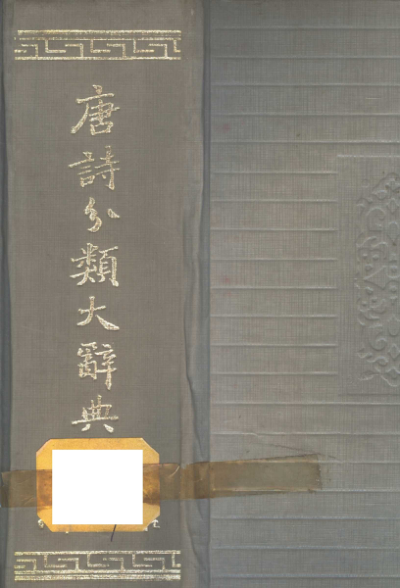 唐詩分類大辭典